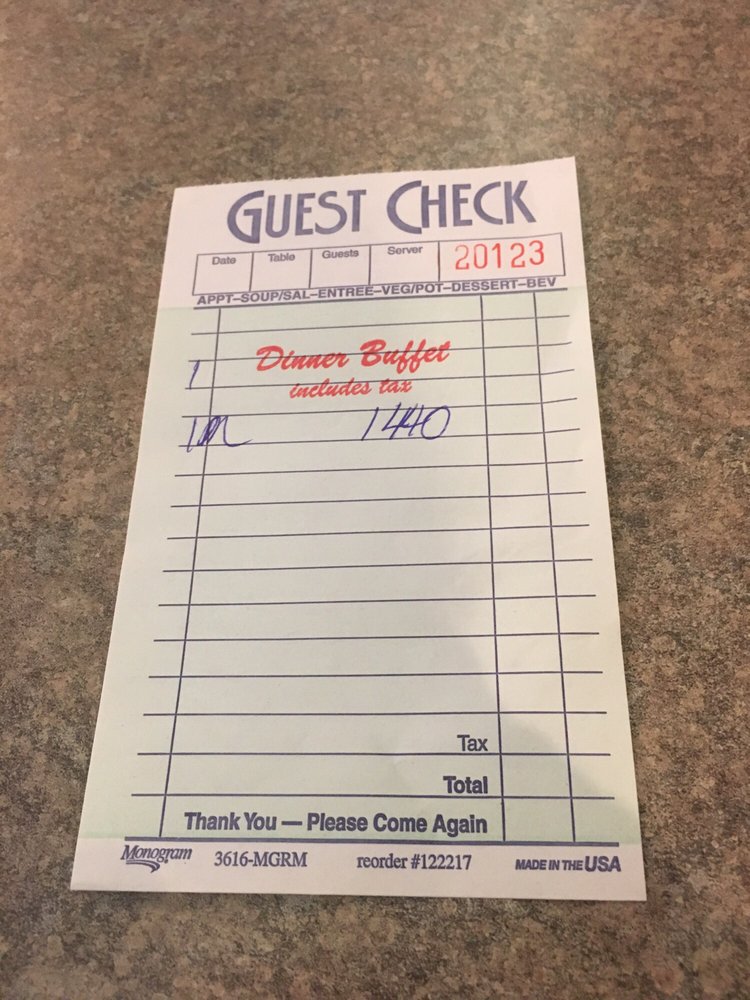 GUEST CHECK
Date Table Guests Server 20123
APPT–SOUP/SAL–ENTREE–VEG/POT–DESSERT–BEV
1 Dinner Buffet
includes tax
1440
Tax
Total
Thank You — Please Come Again
Monogram 3616-MGRM reorder #122217 MADE IN THE USA